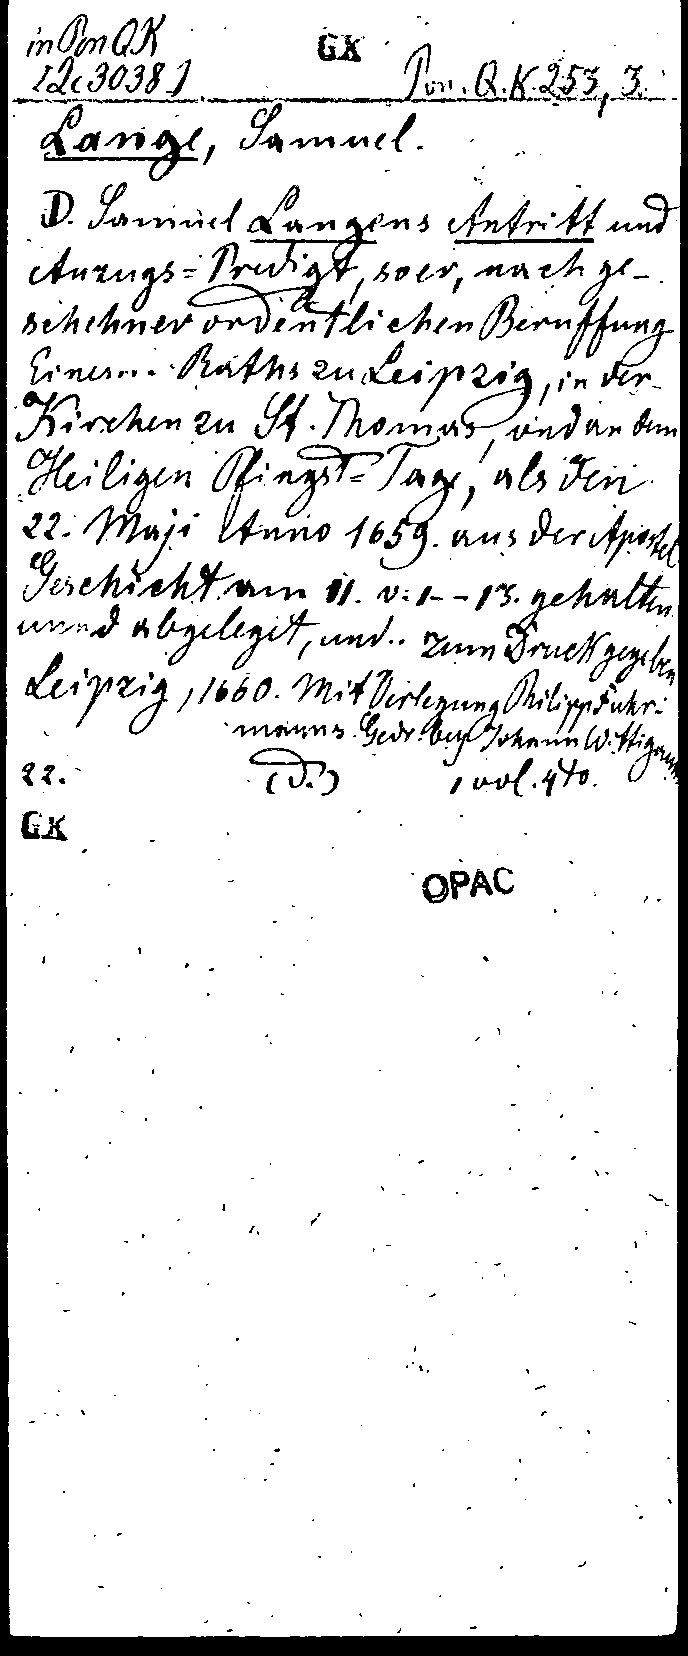 in Pon QK
GK
[2c3038]
Pon. Q. K. 253, 3.
Lange, Samuel.
D. Samuel Langens Antritt und
Anzugs=Predigt, so er, nach ge-
schehner ordentlichen Beruffung
Eines... Raths zu Leipzig, in der
Kirchen zu St. Thomas, und an dem
Heiligen Pfingst=Tage, als den
22. Maji Anno 1659. aus der Apostel
Geschicht am II. v. 1--13. gehalten
unnd abgeleget, und.. zum Druck gegeben
Leipzig, 1660. Mit Verlegung Philipp Fuhr-
manns Gedr. bey Johann Wittigaun
22. (d.) 1 vol. 4to.
GK
OPAC